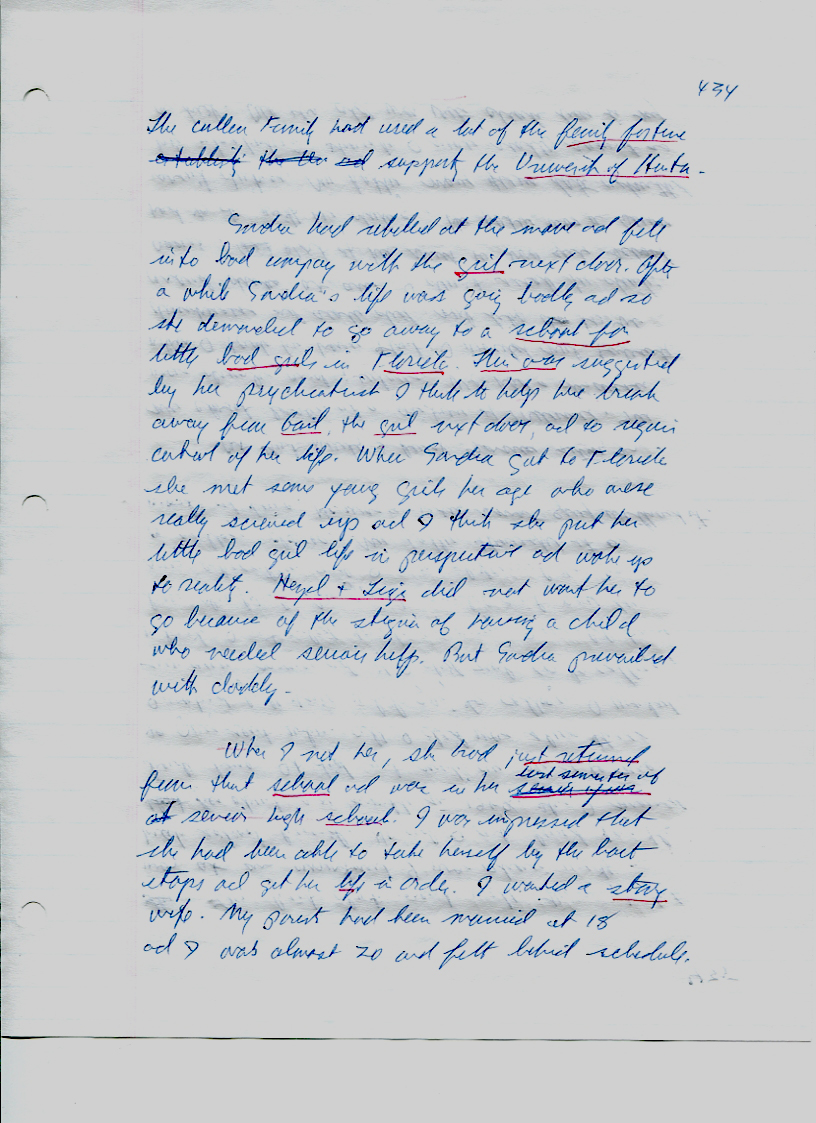 434
The cullen Family had used a lot of the family fortune
establishing support the University of Houston.
Sandra had rebelled at the move ad fell
into bad company with the girl next door. After
a while Sandra's life was going badly ad so
she demanded to go away to a school for
little bad girls in Florida. This was suggested
by her psychiatrist I think to help her break
away from Gail, the girl next door, ad to regain
control of her life. When Sandra got to Florida
she met some young girls her age who were
really screwed up ad I think she put her
little bad girl life in perspective ad woke up
to reality. + did not want her to
go because of the stigma of having a child
who needed serious help. But Sandra prevailed
with daddy.
When I met her, she had just returned
from that school ad was in her last semester of
at senior high school. I was impressed that
she had been able to take herself by the boot
straps ad get her life in order. I wanted a strong
wife. My parents had been married at 18
ad I was almost 20 and felt behind schedule.